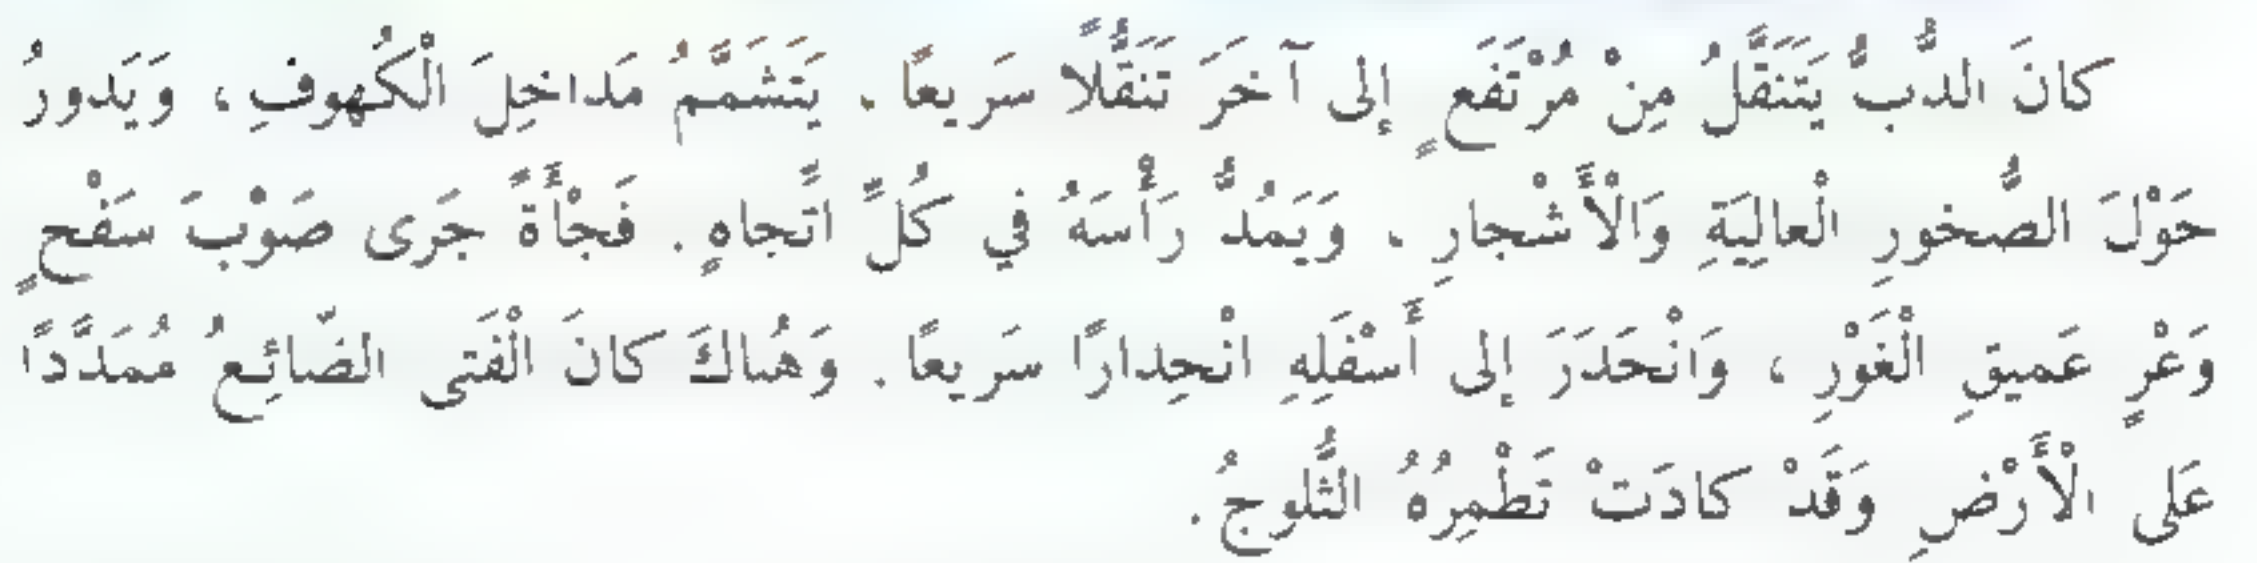 كانَ الدُّبُّ يَتَنَقَّلُ مِنْ مُرْتَفَعٍ إِلى آخَرَ تَنَقُّلًا سَريعًا . يَتَشَمَّمُ مَداخِلَ الْكُهوفِ ، وَيَدورُ
حَوْلَ الصُّخورِ الْعالِيَةِ وَالْأَشْجارِ ، وَيَمُدُّ رَأْسَهُ في كُلِّ اتِّجاهٍ . فَجْأَةً جَرى صَوْبَ سَفْحٍ
وَعْرٍ عَميقِ الْغَوْرِ ، وَانْحَدَرَ إِلى أَسْفَلِهِ انْحِدارًا سَريعًا . وَهُناكَ كانَ الْفَتى الضّائِعُ مُمَدَّدًا
عَلى الْأَرْضِ وَقَدْ كادَتْ تَطْمِرُهُ الثُّلوجُ .